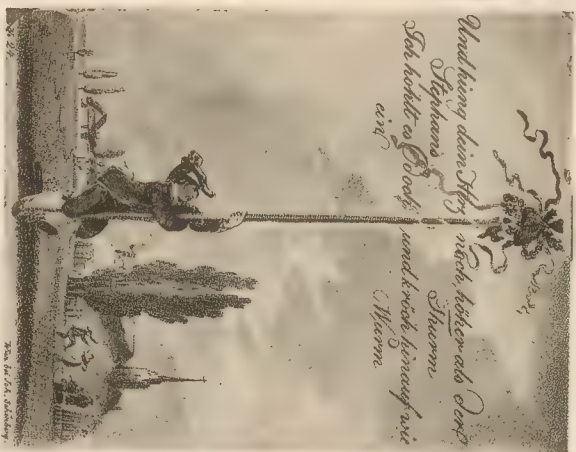 Und hing dein Herz noch, höher als
Stephans Thurm
Ich hohlt es und kröch hinauf wie
ein Wurm
No 29.
Wien bei Joh. Schönberg.